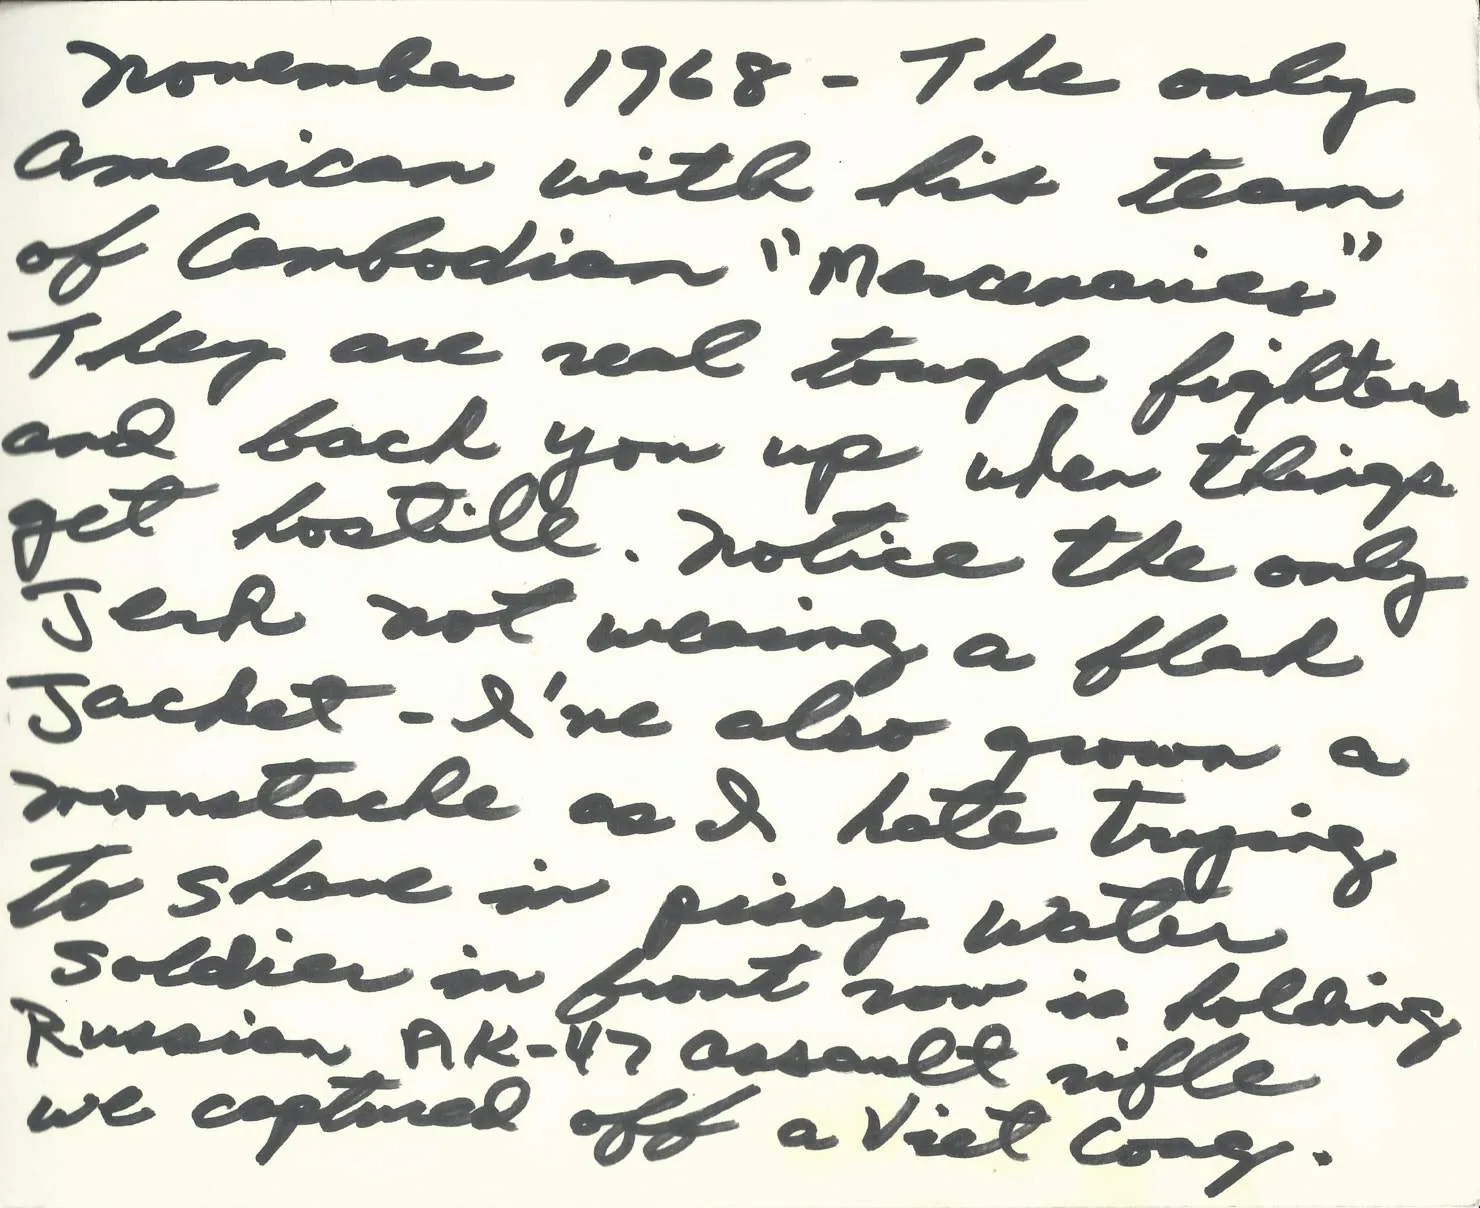 November 1968 - The only
American with his team
of Cambodian "Mercenaries"
They are real tough fighters
and back you up when things
get hostile. Notice the only
Jerk not wearing a flak
Jacket - I've also grown a
moustache as I hate trying
to shave in pissy water
Soldier in front row is holding
Russian AK-47 assault rifle
we captured off a Viet Cong.